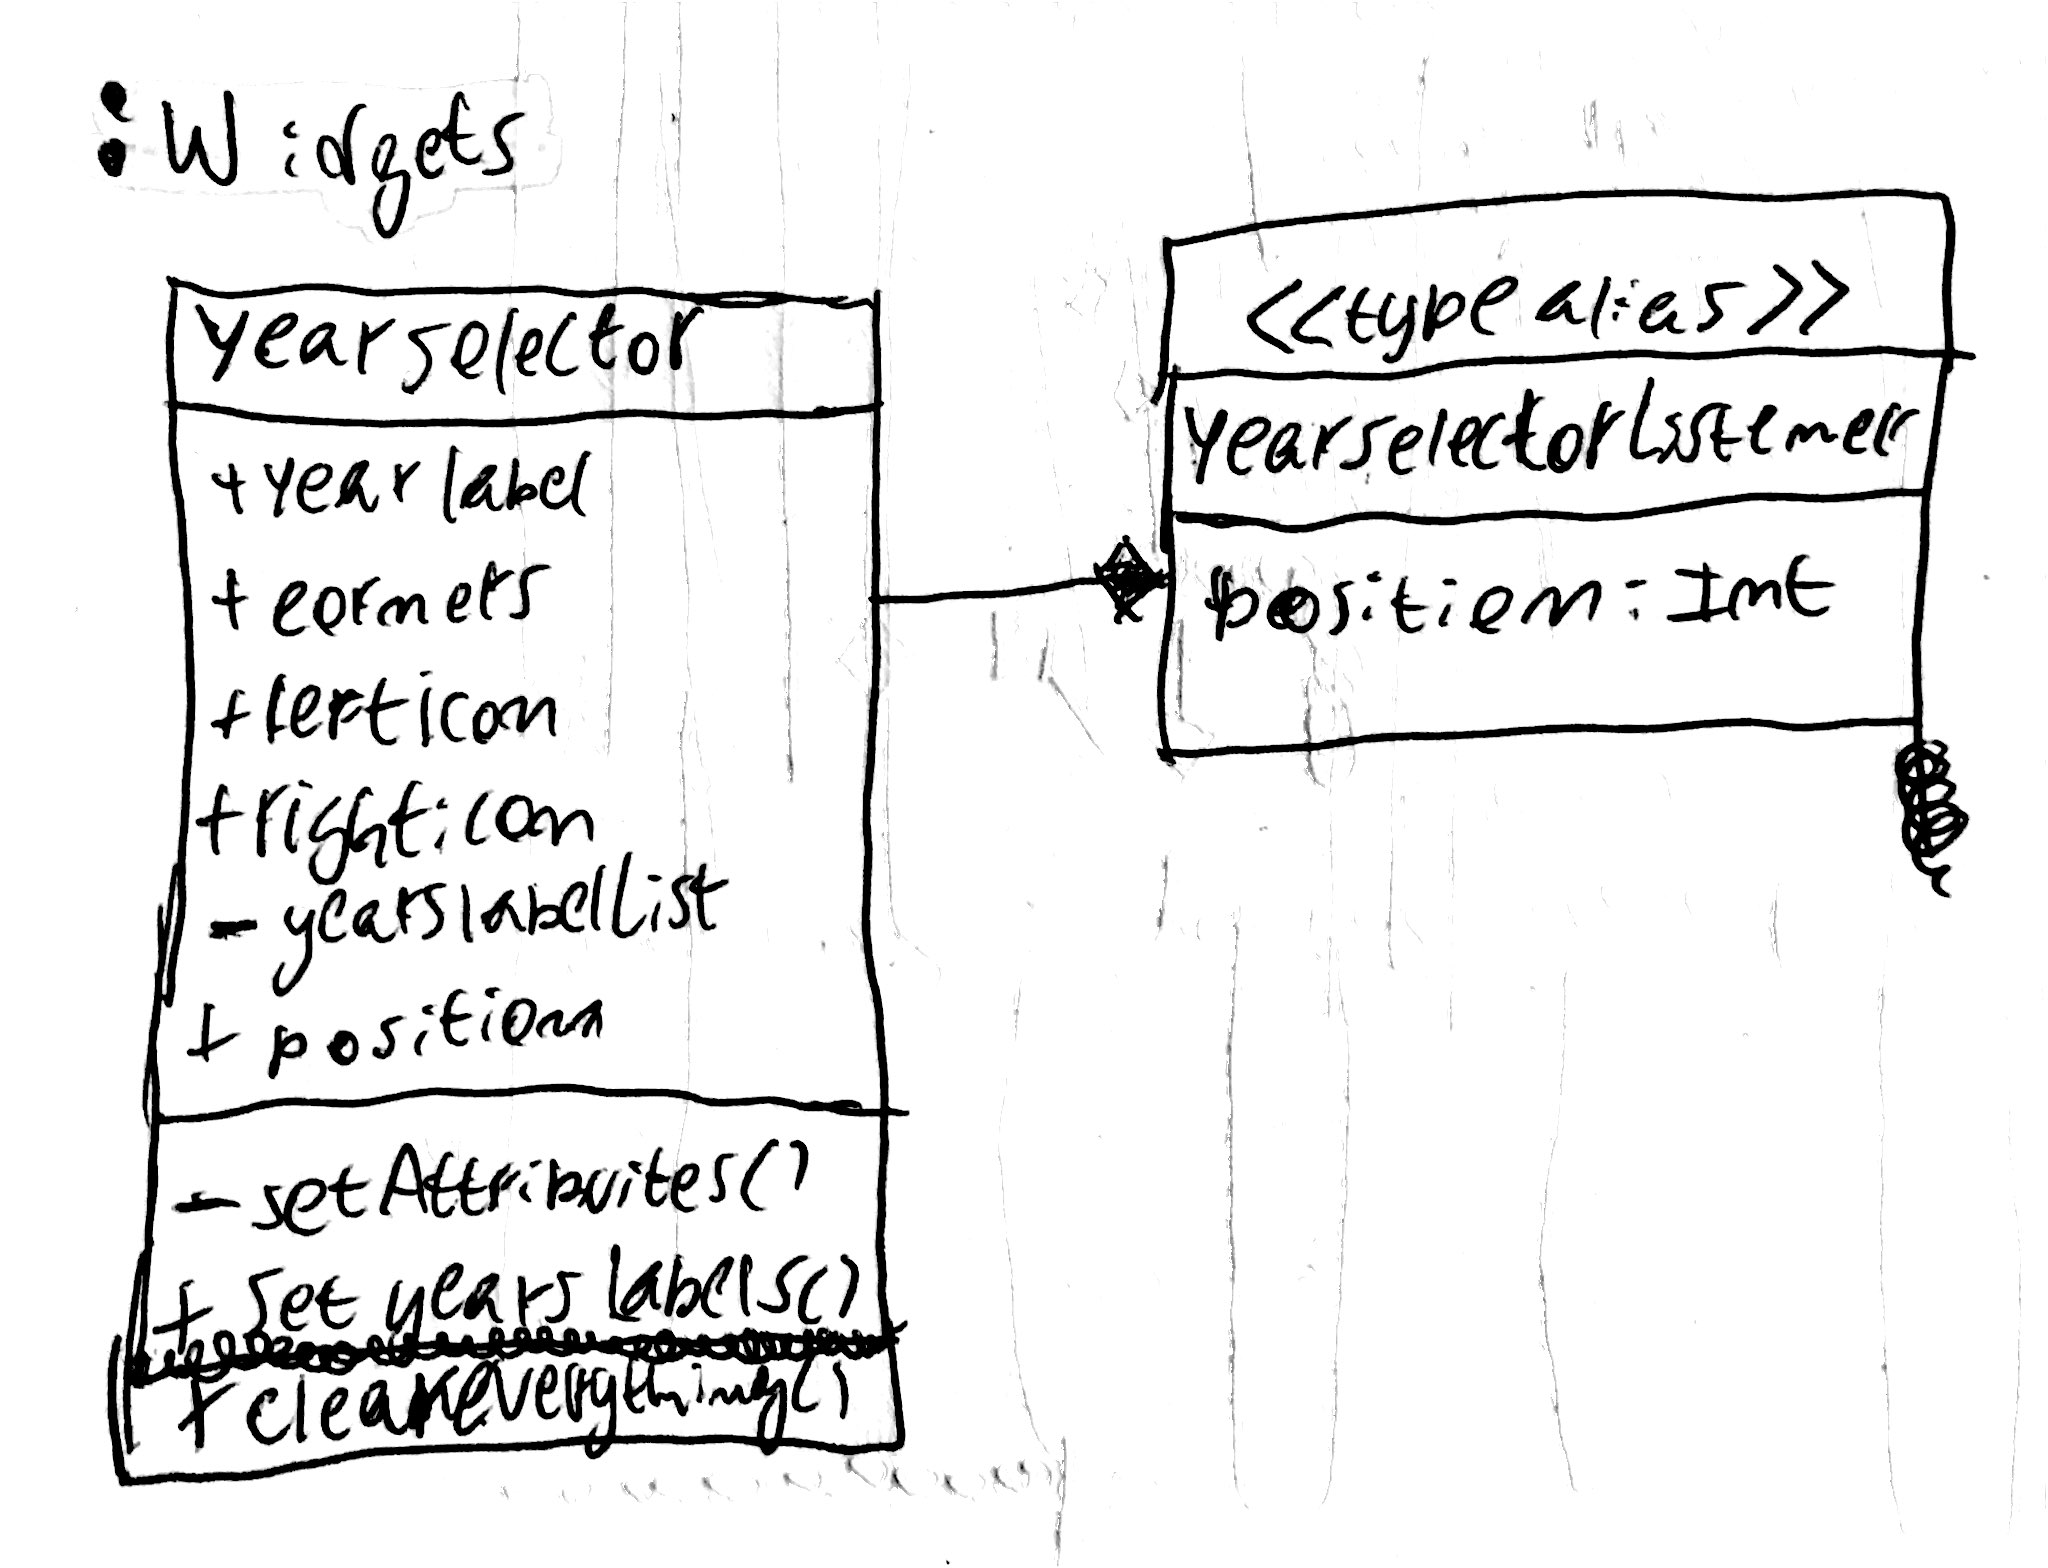 :Widgets
yearselector
+yearlabel
+cormers
+lefticon
+righticon
- yearslabelList
+ position
- setAttribuites()
+ set years labels()
+ cleareverything()
<<type alias>>
yearselectorListemer
position: Int